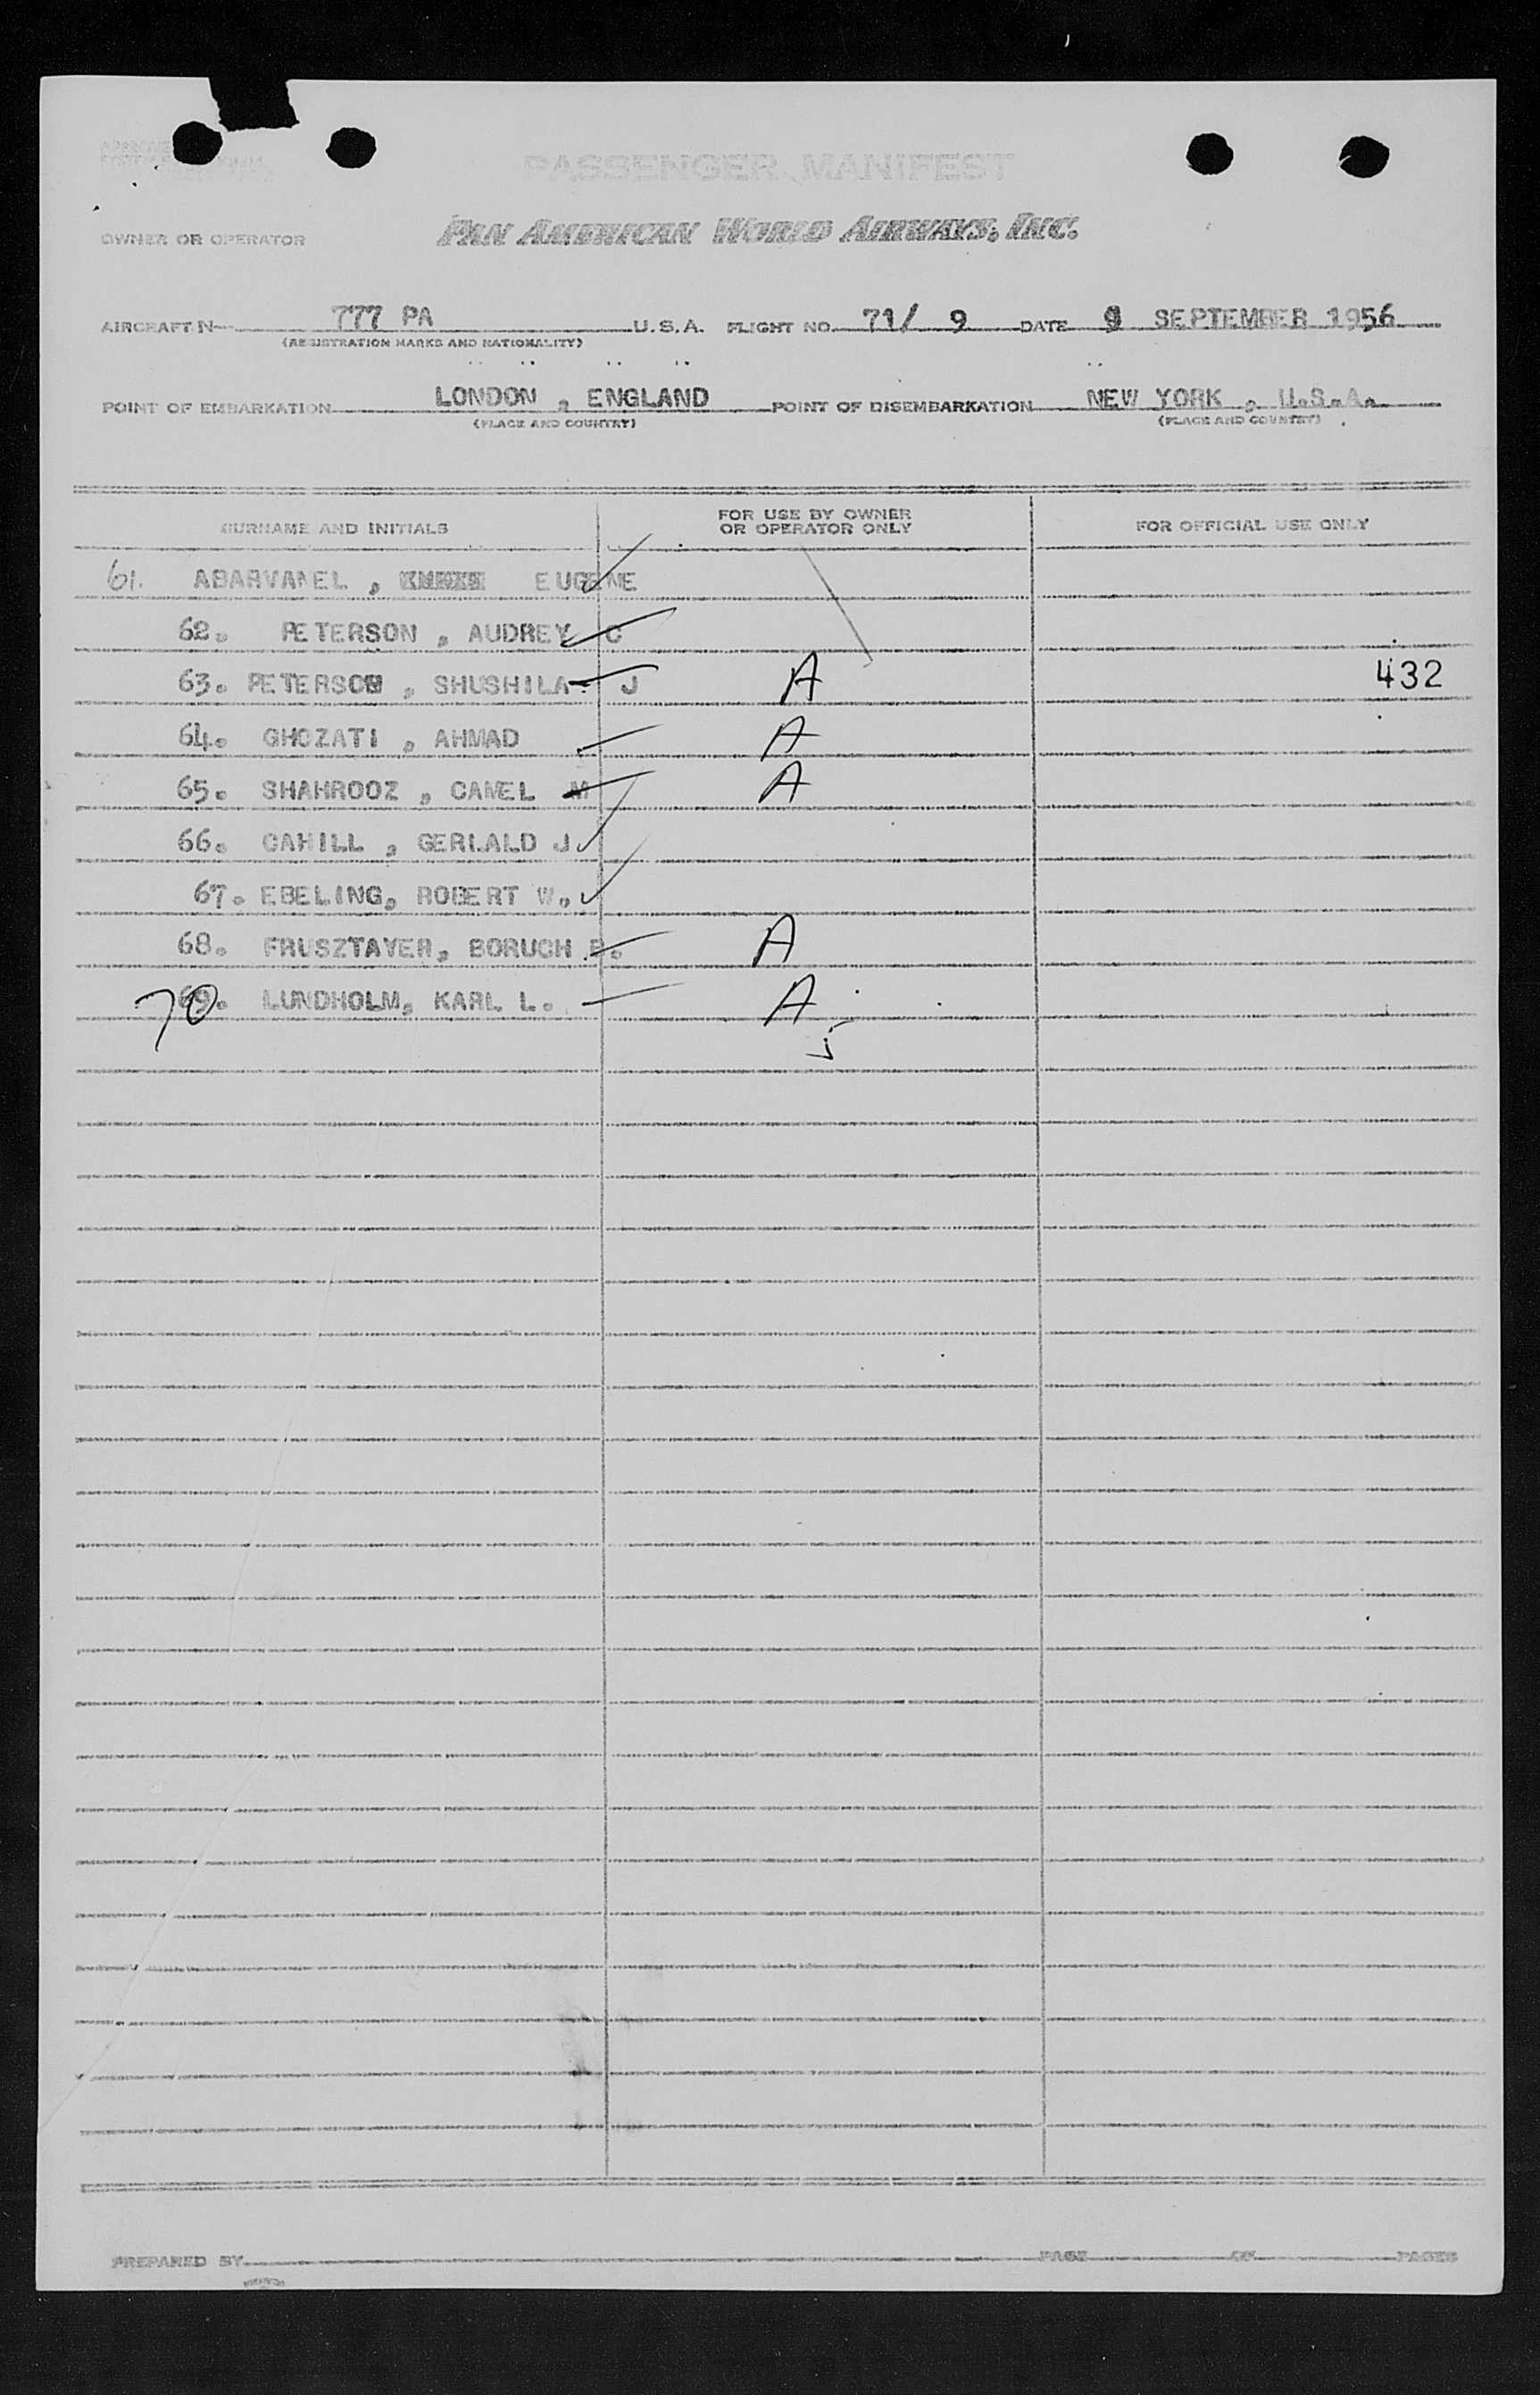 PASSENGER MANIFEST
OWNER OR OPERATOR PAN AMERICAN WORLD AIRWAYS, INC.
AIRCRAFT N 777 PA U.S.A. FLIGHT NO. 71/ 9 DATE 9 SEPTEMBER 1956
(REGISTRATION MARKS AND NATIONALITY)
POINT OF EMBARKATION LONDON , ENGLAND POINT OF DISEMBARKATION NEW YORK , U.S.A.
(PLACE AND COUNTRY) (PLACE AND COUNTRY)
SURNAME AND INITIALS FOR USE BY OWNER OR OPERATOR ONLY FOR OFFICIAL USE ONLY
61. ABARVANEL , EUGENE
62. PETERSON , AUDREY C
63. PETERSON , SHUSHILA J A 432
64. GHOZATI , AHMAD A
65. SHAHROOZ , CAMEL M A
66. CAHILL , GERLALD J
67. EBELING, ROBERT W.
68. FRUSZTAYER, BORUCH B. A
70 69. LUNDHOLM, KARL L. A
5
PREPARED BY PAGE OF PAGES